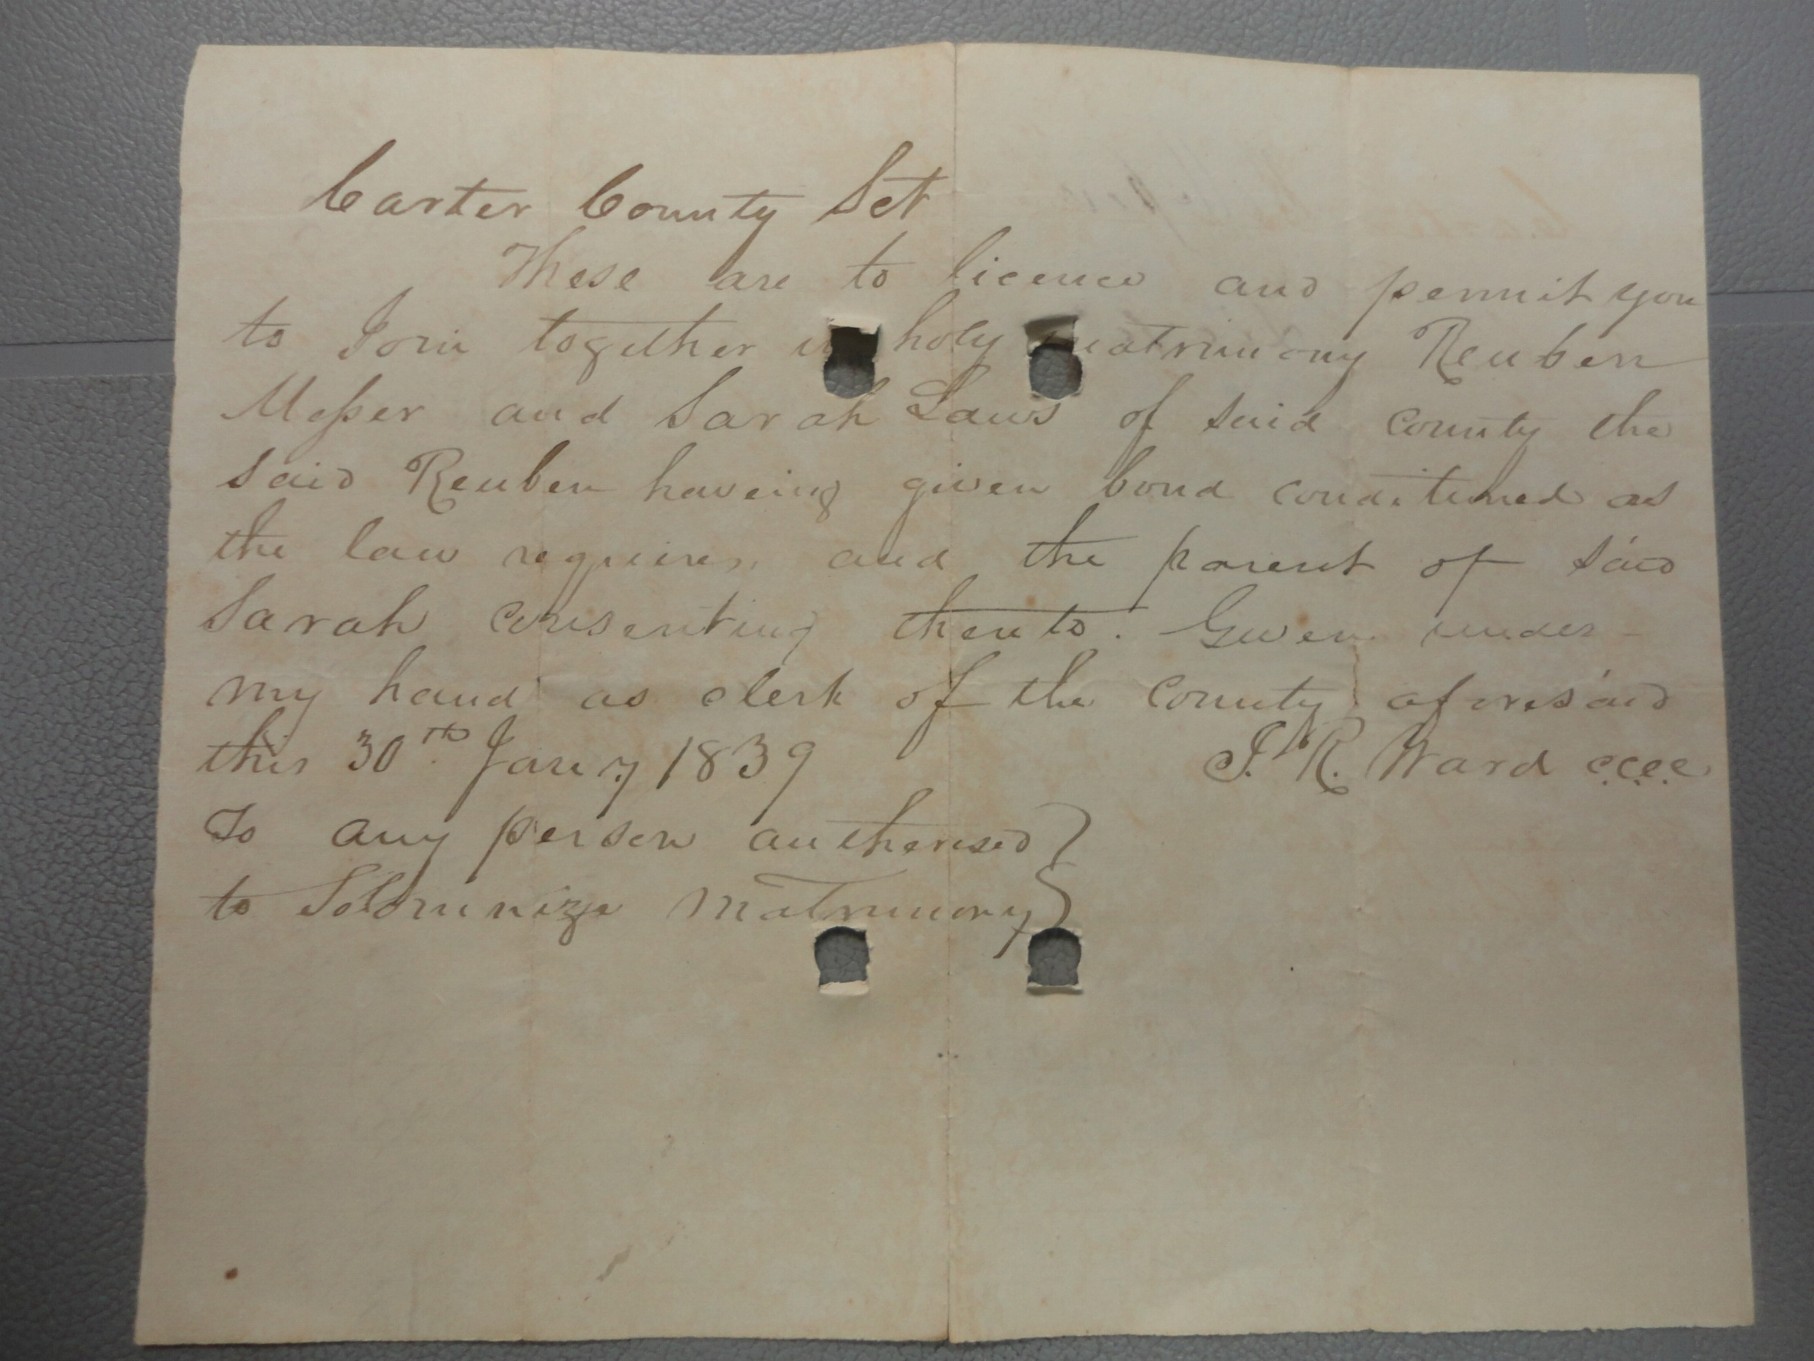 Carter County Sct
These are to licence and permit you
to Join together in holy matrimony Reuben
Messer and Sarah Laws of said County the
said Reuben haveing given bond conditioned as
the law requires and the parent of said
Sarah consenting thereto. Given under
my hand as clerk of the County aforesaid
this 30th Jany 1839 J. R. Ward c.c.c.c
To any person autherised
to Solominize Matrimony